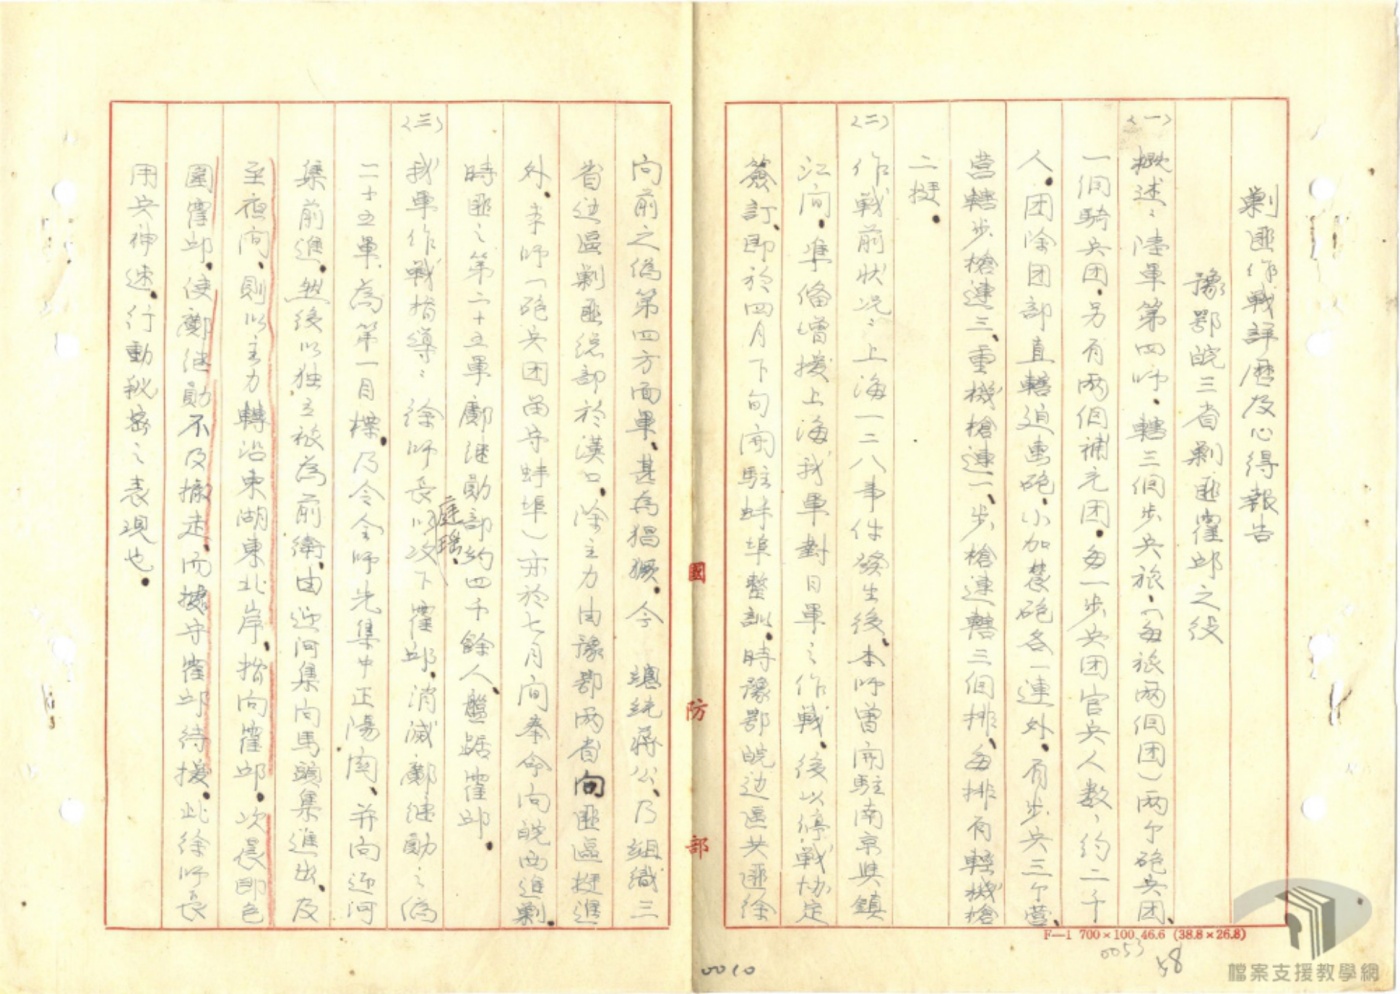 剿匪作戰詳歷及心得報告
豫鄂皖三省剿匪霍邱之役
(一)概述：陸軍第四師、轄三個步兵旅，(每旅兩個团)兩个砲兵团、
一個騎兵团，另有兩個補充团，每一步兵团官兵人数，約二千
人，团除团部直轄迫击砲，小加农砲各一連外，有步兵三个营，
营轄步槍連三、重機槍連一、步槍連轄三個排，每排有輕機槍
二挺。
(二)作戰前狀况：上海一二八事件發生後，本師曾開駐南京與鎮
江間，準備增援上海我軍對日軍之作戰，後以停戰协定
簽訂，即於四月下旬開駐蚌埠整訓，時豫鄂皖边區共匪徐
向前之偽第四方面軍，甚為猖獗，今 總統蔣公，乃組織三
省边區剿匪總部於漢口，除主力由豫鄂兩省向匪區挺進
外，本師(砲兵团留守蚌埠)亦於七月間奉命向皖西進剿，
時匪之第二十五軍鄺继勛部約四千餘人，盤踞霍邱。
(三)我軍作戰指導：徐師長庭瑤，以攻下霍邱，消滅鄺继勛之偽
二十五軍，為第一目標，乃令全師先集中正陽関，并向迎河
集前進，然後以独立旅為前衛，由迎河集向馬店集進出，及
至夜间，則以主力轉沿東湖東北岸，指向霍邱，次晨即包
圍霍邱，使鄺继勛不及撤走，而據守霍邱待援，此徐师長
用兵神速，行動秘密之表現也。
國防部
F—1 700×100 46.6 (38.8×26.8)
0053
58
0010
檔案支援教學網